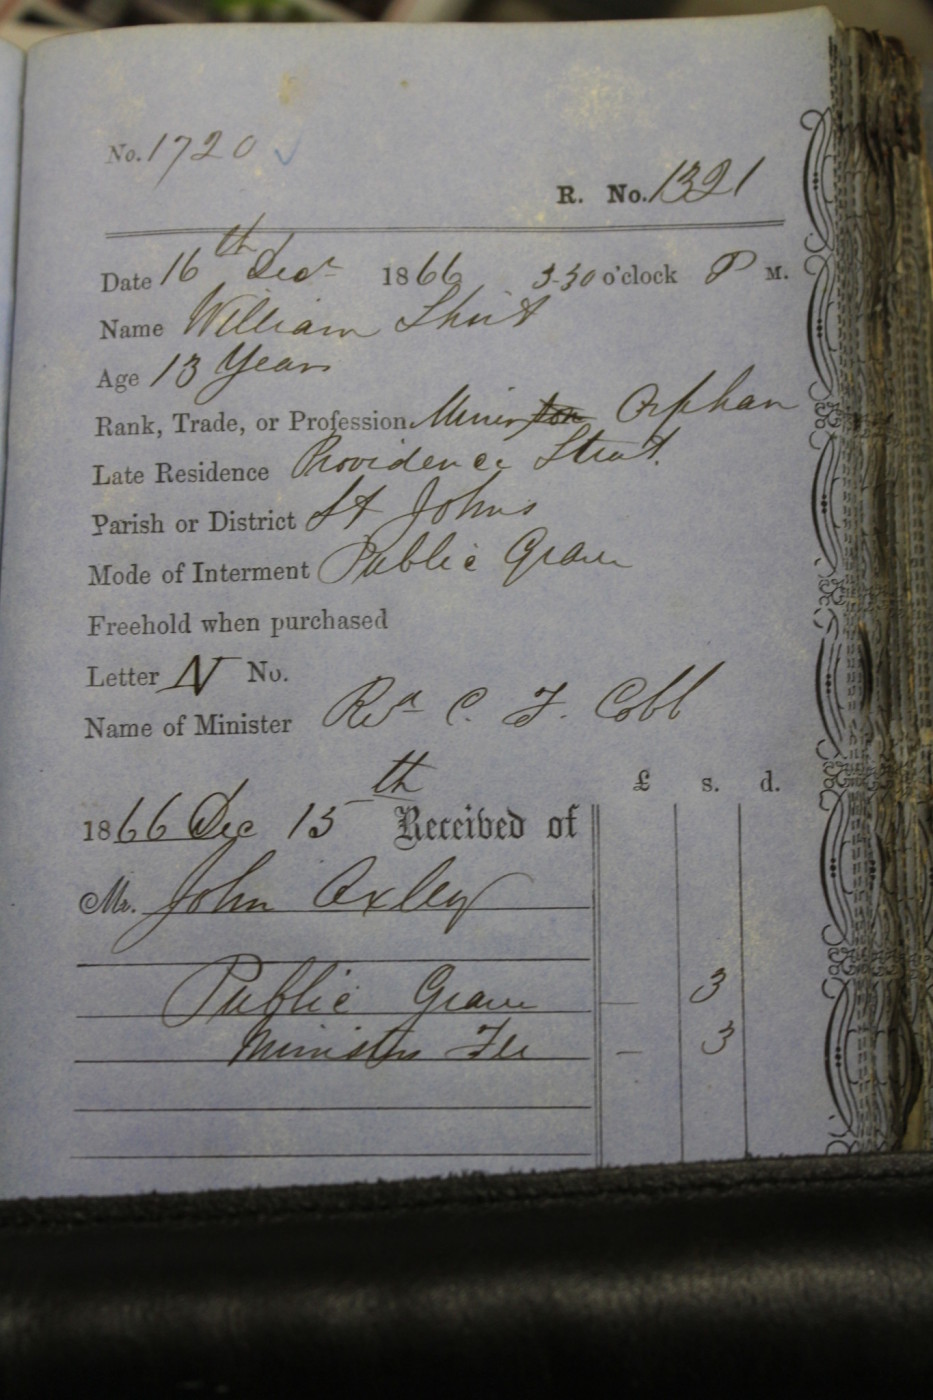 No. 1720
R. No. 1321
Date 16th Decr 1866 3-30 o'clock P M.
Name William
Age 13 Years
Rank, Trade, or Profession Orphan
Late Residence Providence Street
Parish or District St Johns
Mode of Interment Public Grave
Freehold when purchased
Letter N No.
Name of Minister Revd C. F. Cobb
£ s. d.
1866 Dec 15th Received of
Mr. John Oxley
Public Grave — 3
Ministers Fee — 3